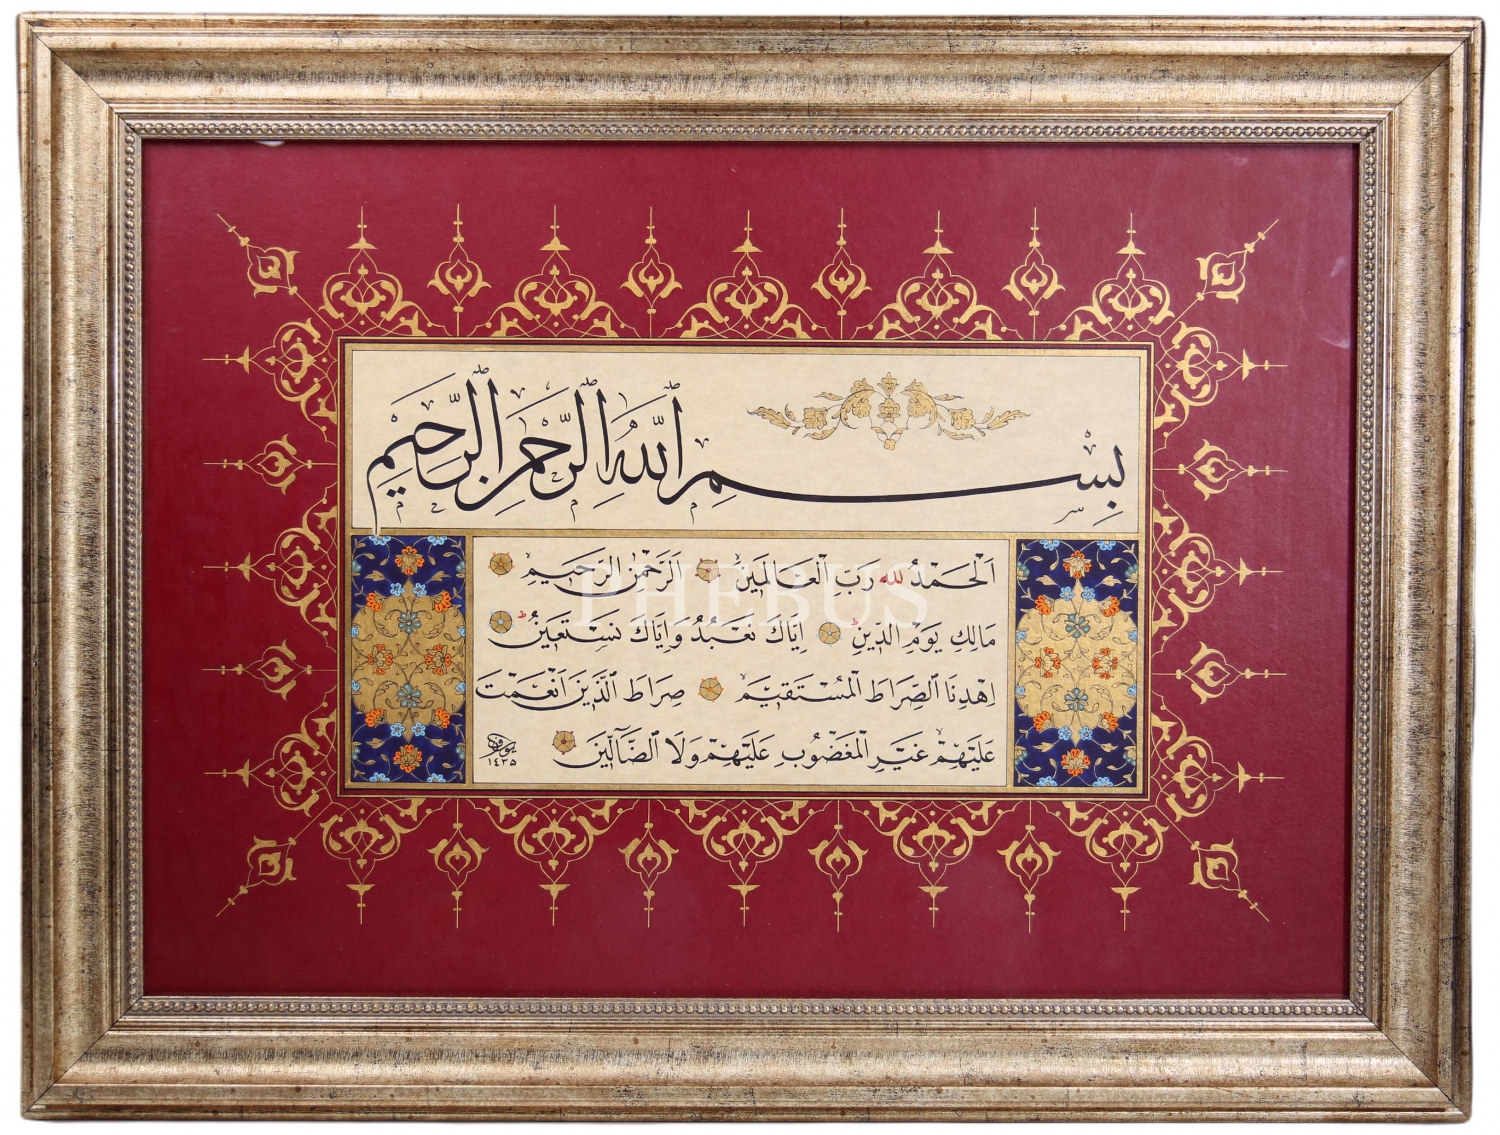 بِسْمِ اللَّهِ الرَّحْمٰنِ الرَّحِيمِ
اَلْحَمْدُ لله رَبِّ الْعَالَمِينَ اَلرَّحْمٰنِ الرَّحِيمِ
مَالِكِ يَوْمِ الدِّينِ اِيَّاكَ نَعْبُدُ وَاِيَّاكَ نَسْتَعِينُ
اِهْدِنَا الصِّرَاطَ الْمُسْتَقِيمَ صِرَاطَ الَّذِينَ اَنْعَمْتَ
عَلَيْهِمْ غَيْرِ الْمَغْضُوبِ عَلَيْهِمْ وَلَا الضَّآلِّينَ
١٤٣٥
PHEBUS